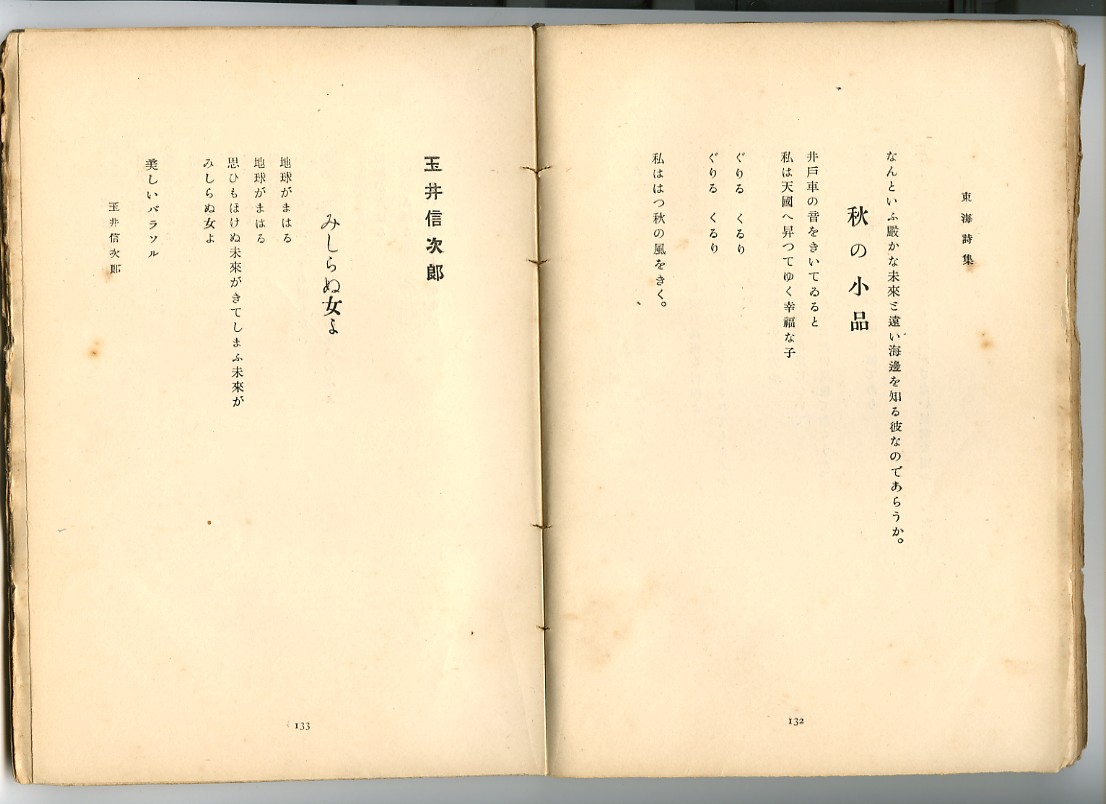 東海詩集
なんといふ嚴かな未來と遠い海邊を知る彼なのであらうか。
秋の小品
井戸車の音をきいてゐると
私は天國へ昇つてゆく幸福な子
ぐりる くるり
ぐりる くるり
私ははつ秋の風をきく。
132
玉井信次郎
みしらぬ女よ
地球がまはる
地球がまはる
思ひもほけぬ未來がきてしまふ未來が
みしらぬ女よ
美しいパラソル
玉井信次郎
133